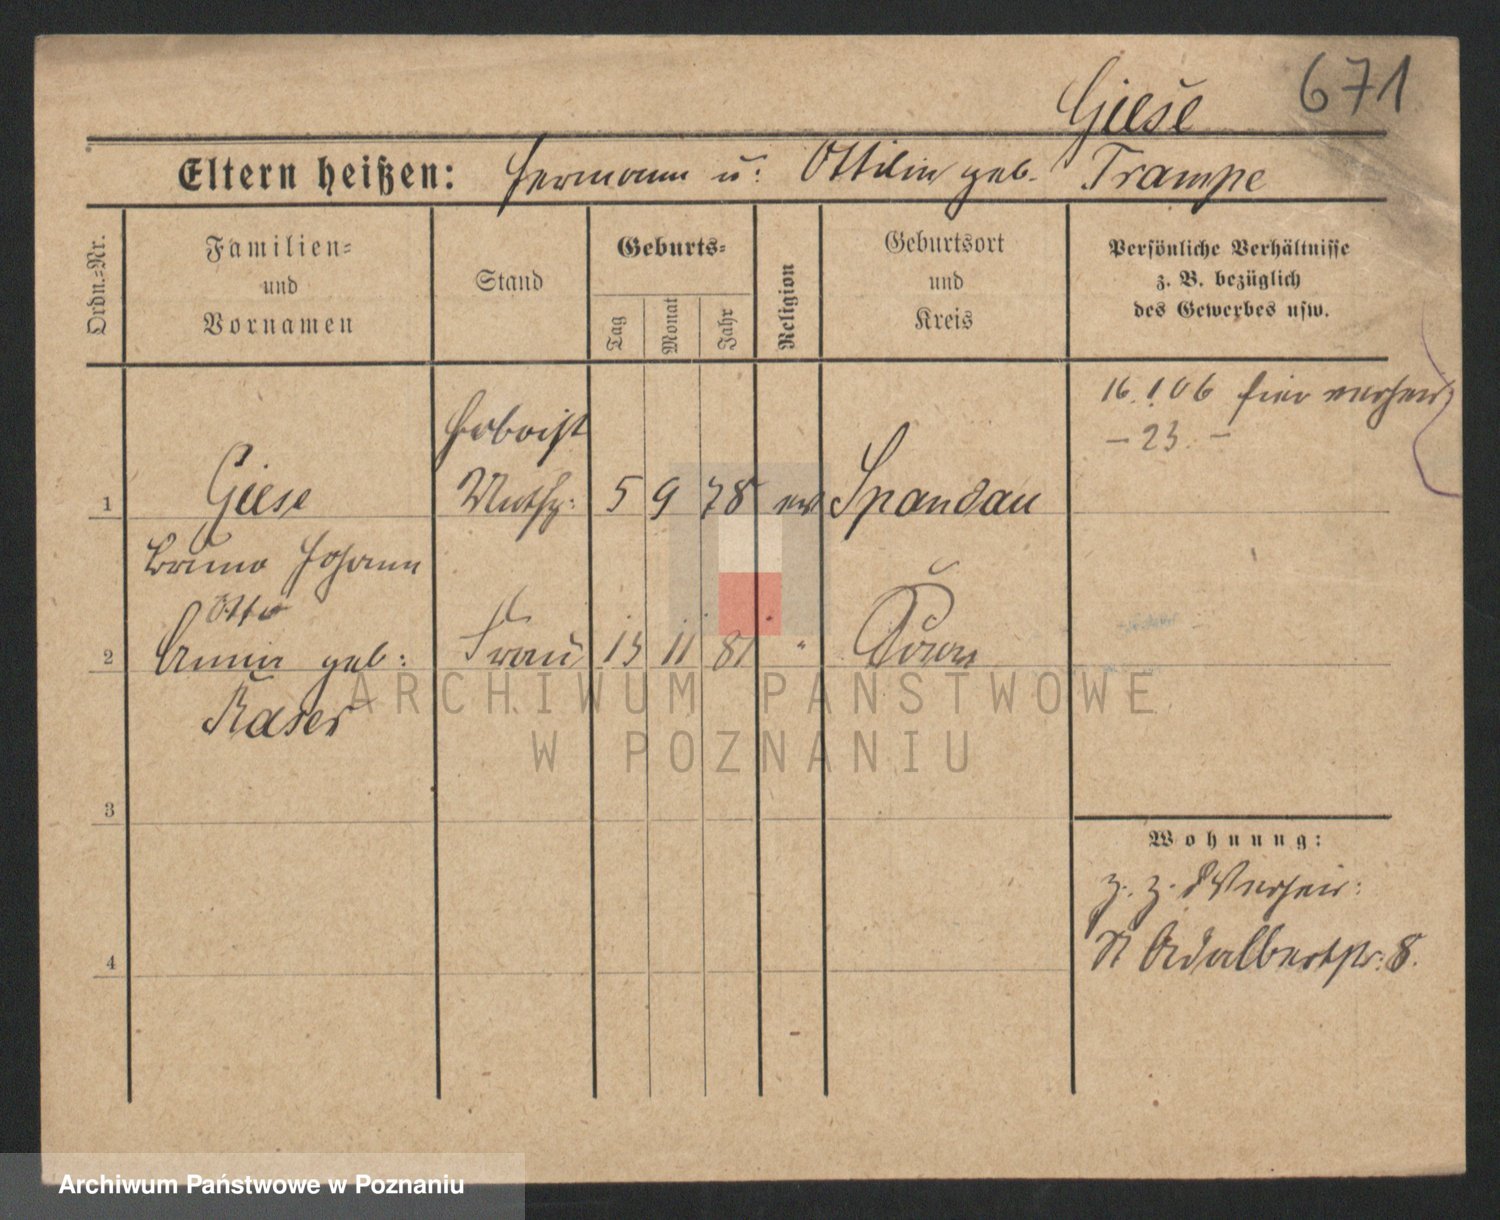 671
Giese
Eltern heißen: Hermann u: Ottilie geb. Trampe
Ordn.=Nr.
Familien=
und
Vornamen
Stand
Geburts=
Tag
Monat
Jahr
Religion
Geburtsort
und
Kreis
Persönliche Verhältnisse
z. B. bezüglich
des Gewerbes usw.
16.1.06 hier verheir
– 23. –
1 Giese 5 9 78 ev Spandau
Bruno Johann
Otto
2 geb: Frau 13 11 81 "
ARCHIWUM PAŃSTWOWE
W POZNANIU
3
Wohnung:
z. z.
4
St Adalbertstr. 8.
Archiwum Państwowe w Poznaniu